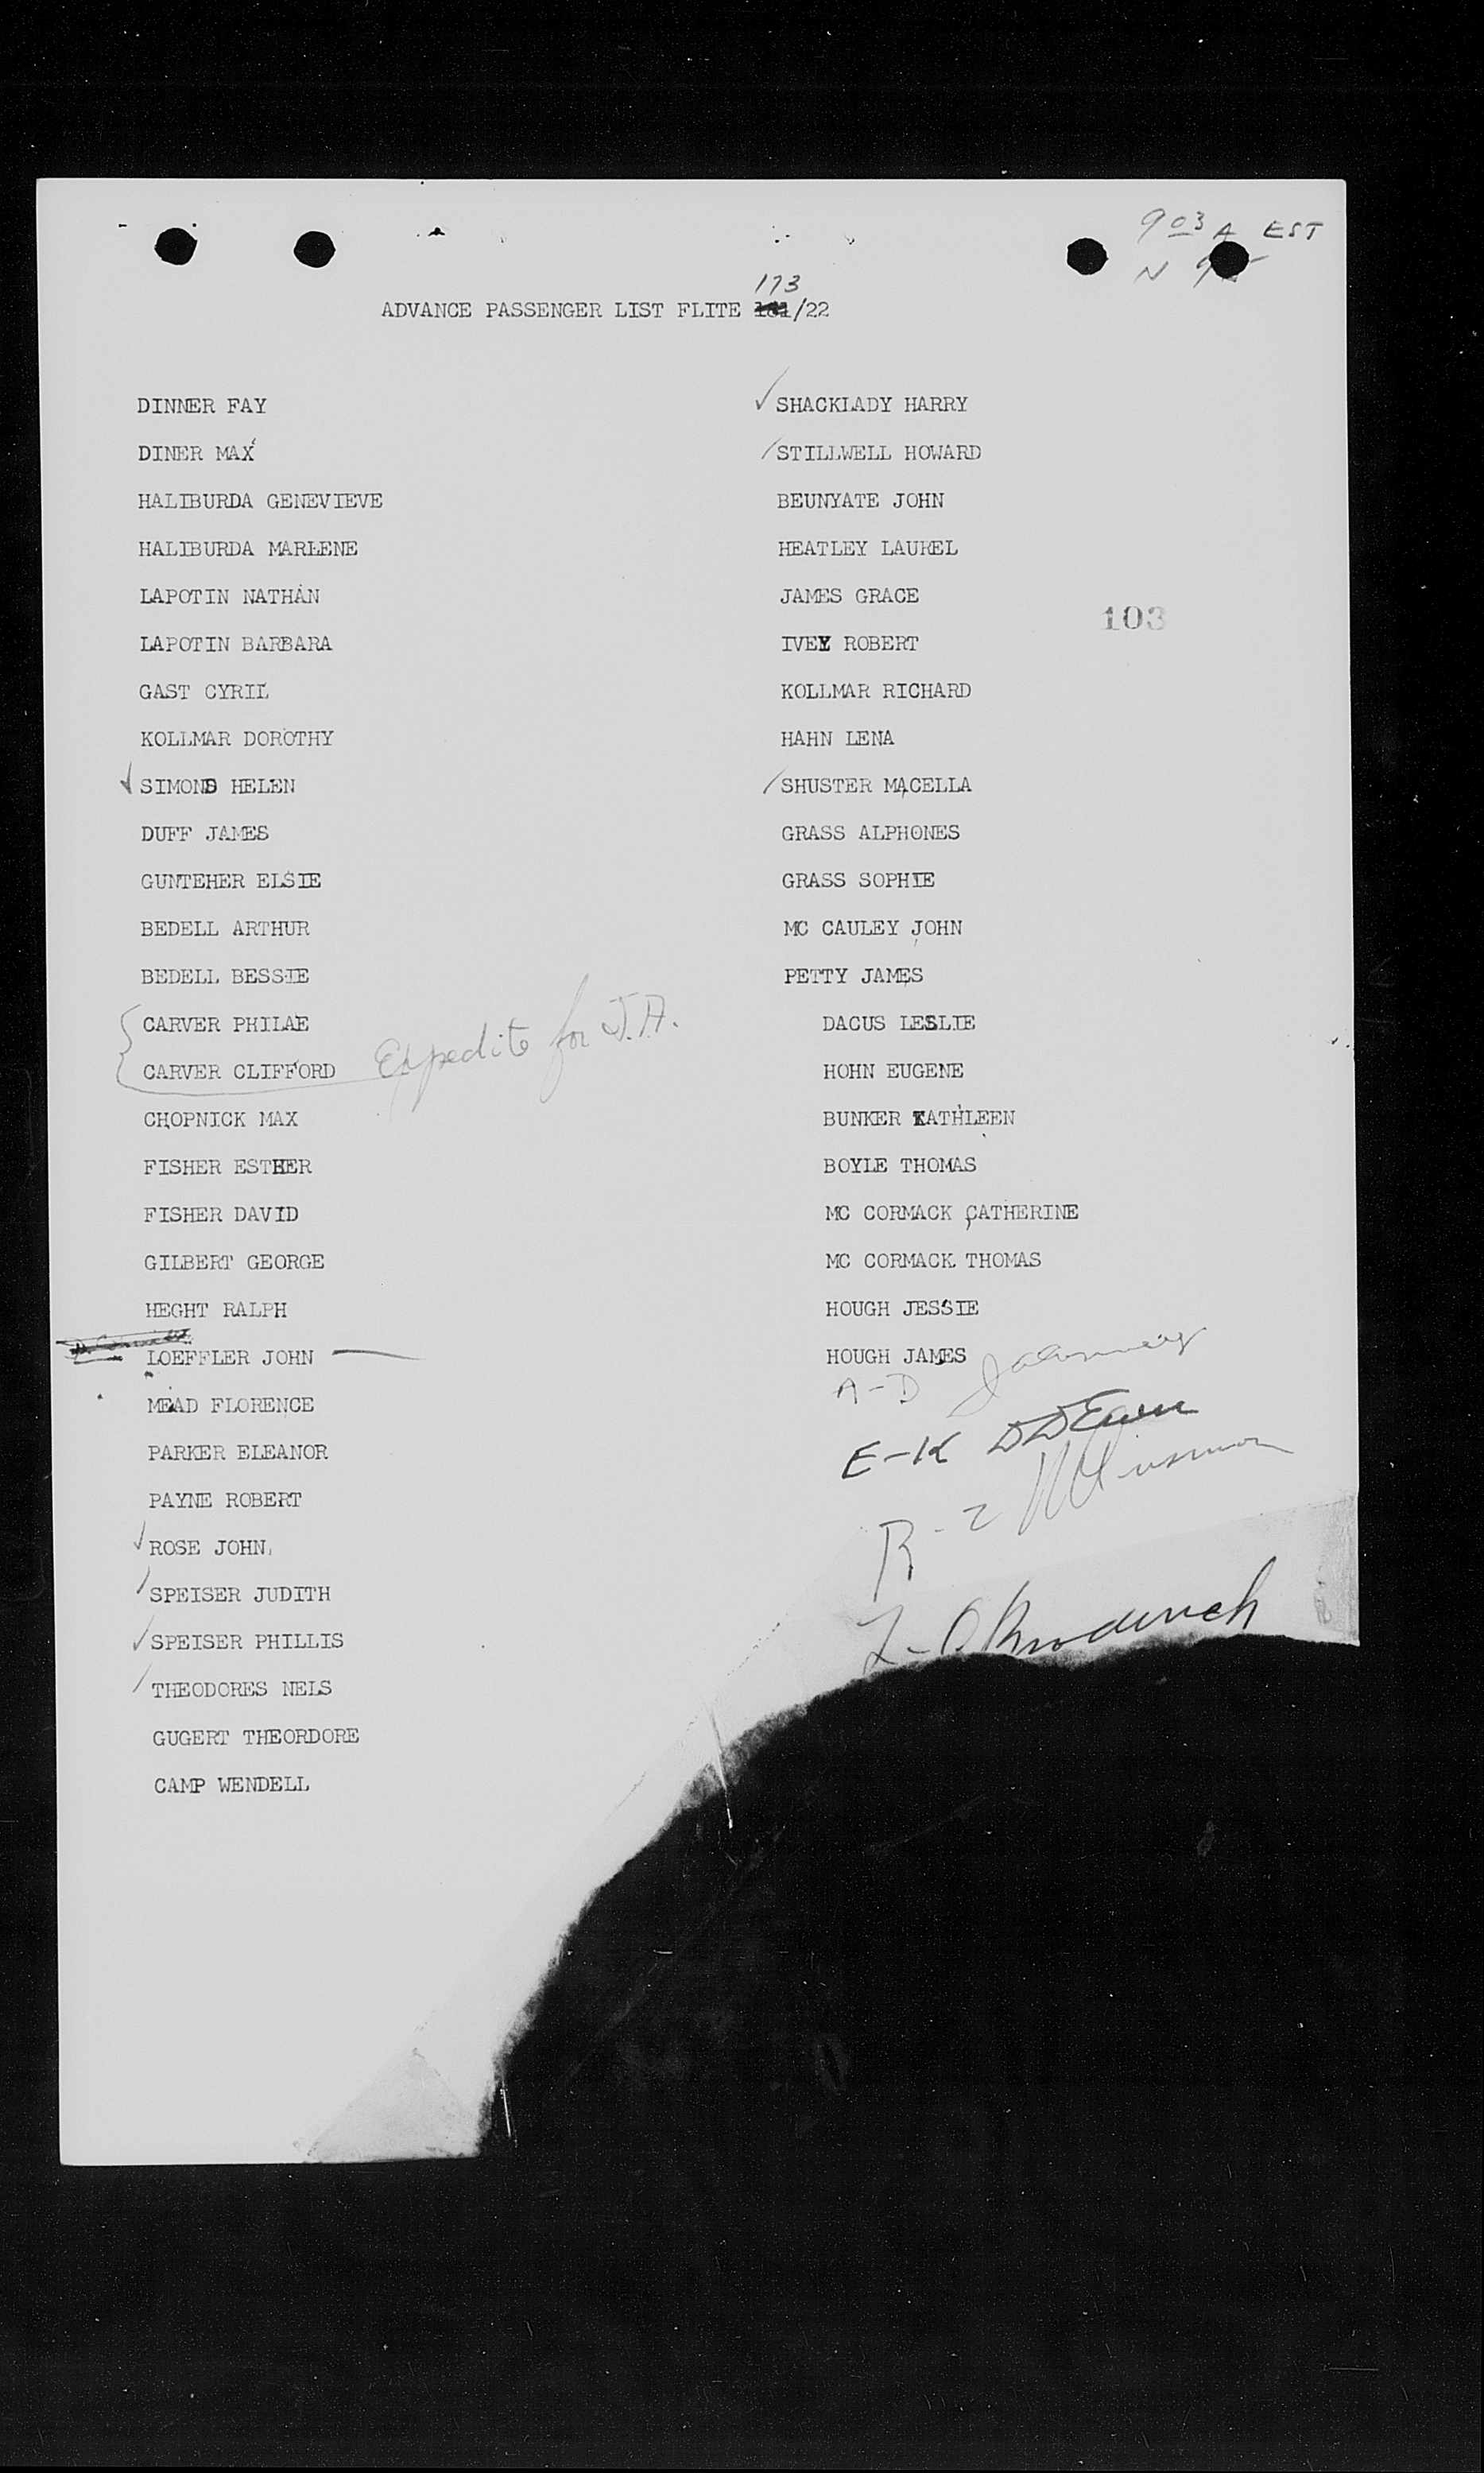 903 A EST
N
173
ADVANCE PASSENGER LIST FLITE /22
DINNER FAY
DINER MAX
HALIBURDA GENEVIEVE
HALIBURDA MARLENE
LAPOTIN NATHAN
LAPOTIN BARBARA
GAST CYRIL
KOLLMAR DOROTHY
SIMONS HELEN
DUFF JAMES
GUNTEHER ELSIE
BEDELL ARTHUR
BEDELL BESSIE
CARVER PHILAE
CARVER CLIFFORD Expedite for J.A.
CHOPNICK MAX
FISHER ESTHER
FISHER DAVID
GILBERT GEORGE
HEGHT RALPH
LOEFFLER JOHN
MEAD FLORENCE
PARKER ELEANOR
PAYNE ROBERT
ROSE JOHN
SPEISER JUDITH
SPEISER PHILLIS
THEODORES NELS
GUGERT THEORDORE
CAMP WENDELL
SHACKLADY HARRY
STILLWELL HOWARD
BEUNYATE JOHN
HEATLEY LAUREL
JAMES GRACE
103
IVEY ROBERT
KOLLMAR RICHARD
HAHN LENA
SHUSTER MACELLA
GRASS ALPHONES
GRASS SOPHIE
MC CAULEY JOHN
PETTY JAMES
DACUS LESLIE
HOHN EUGENE
BUNKER KATHLEEN
BOYLE THOMAS
MC CORMACK CATHERINE
MC CORMACK THOMAS
HOUGH JESSIE
HOUGH JAMES
A-D
E-K
R-Z
L-O